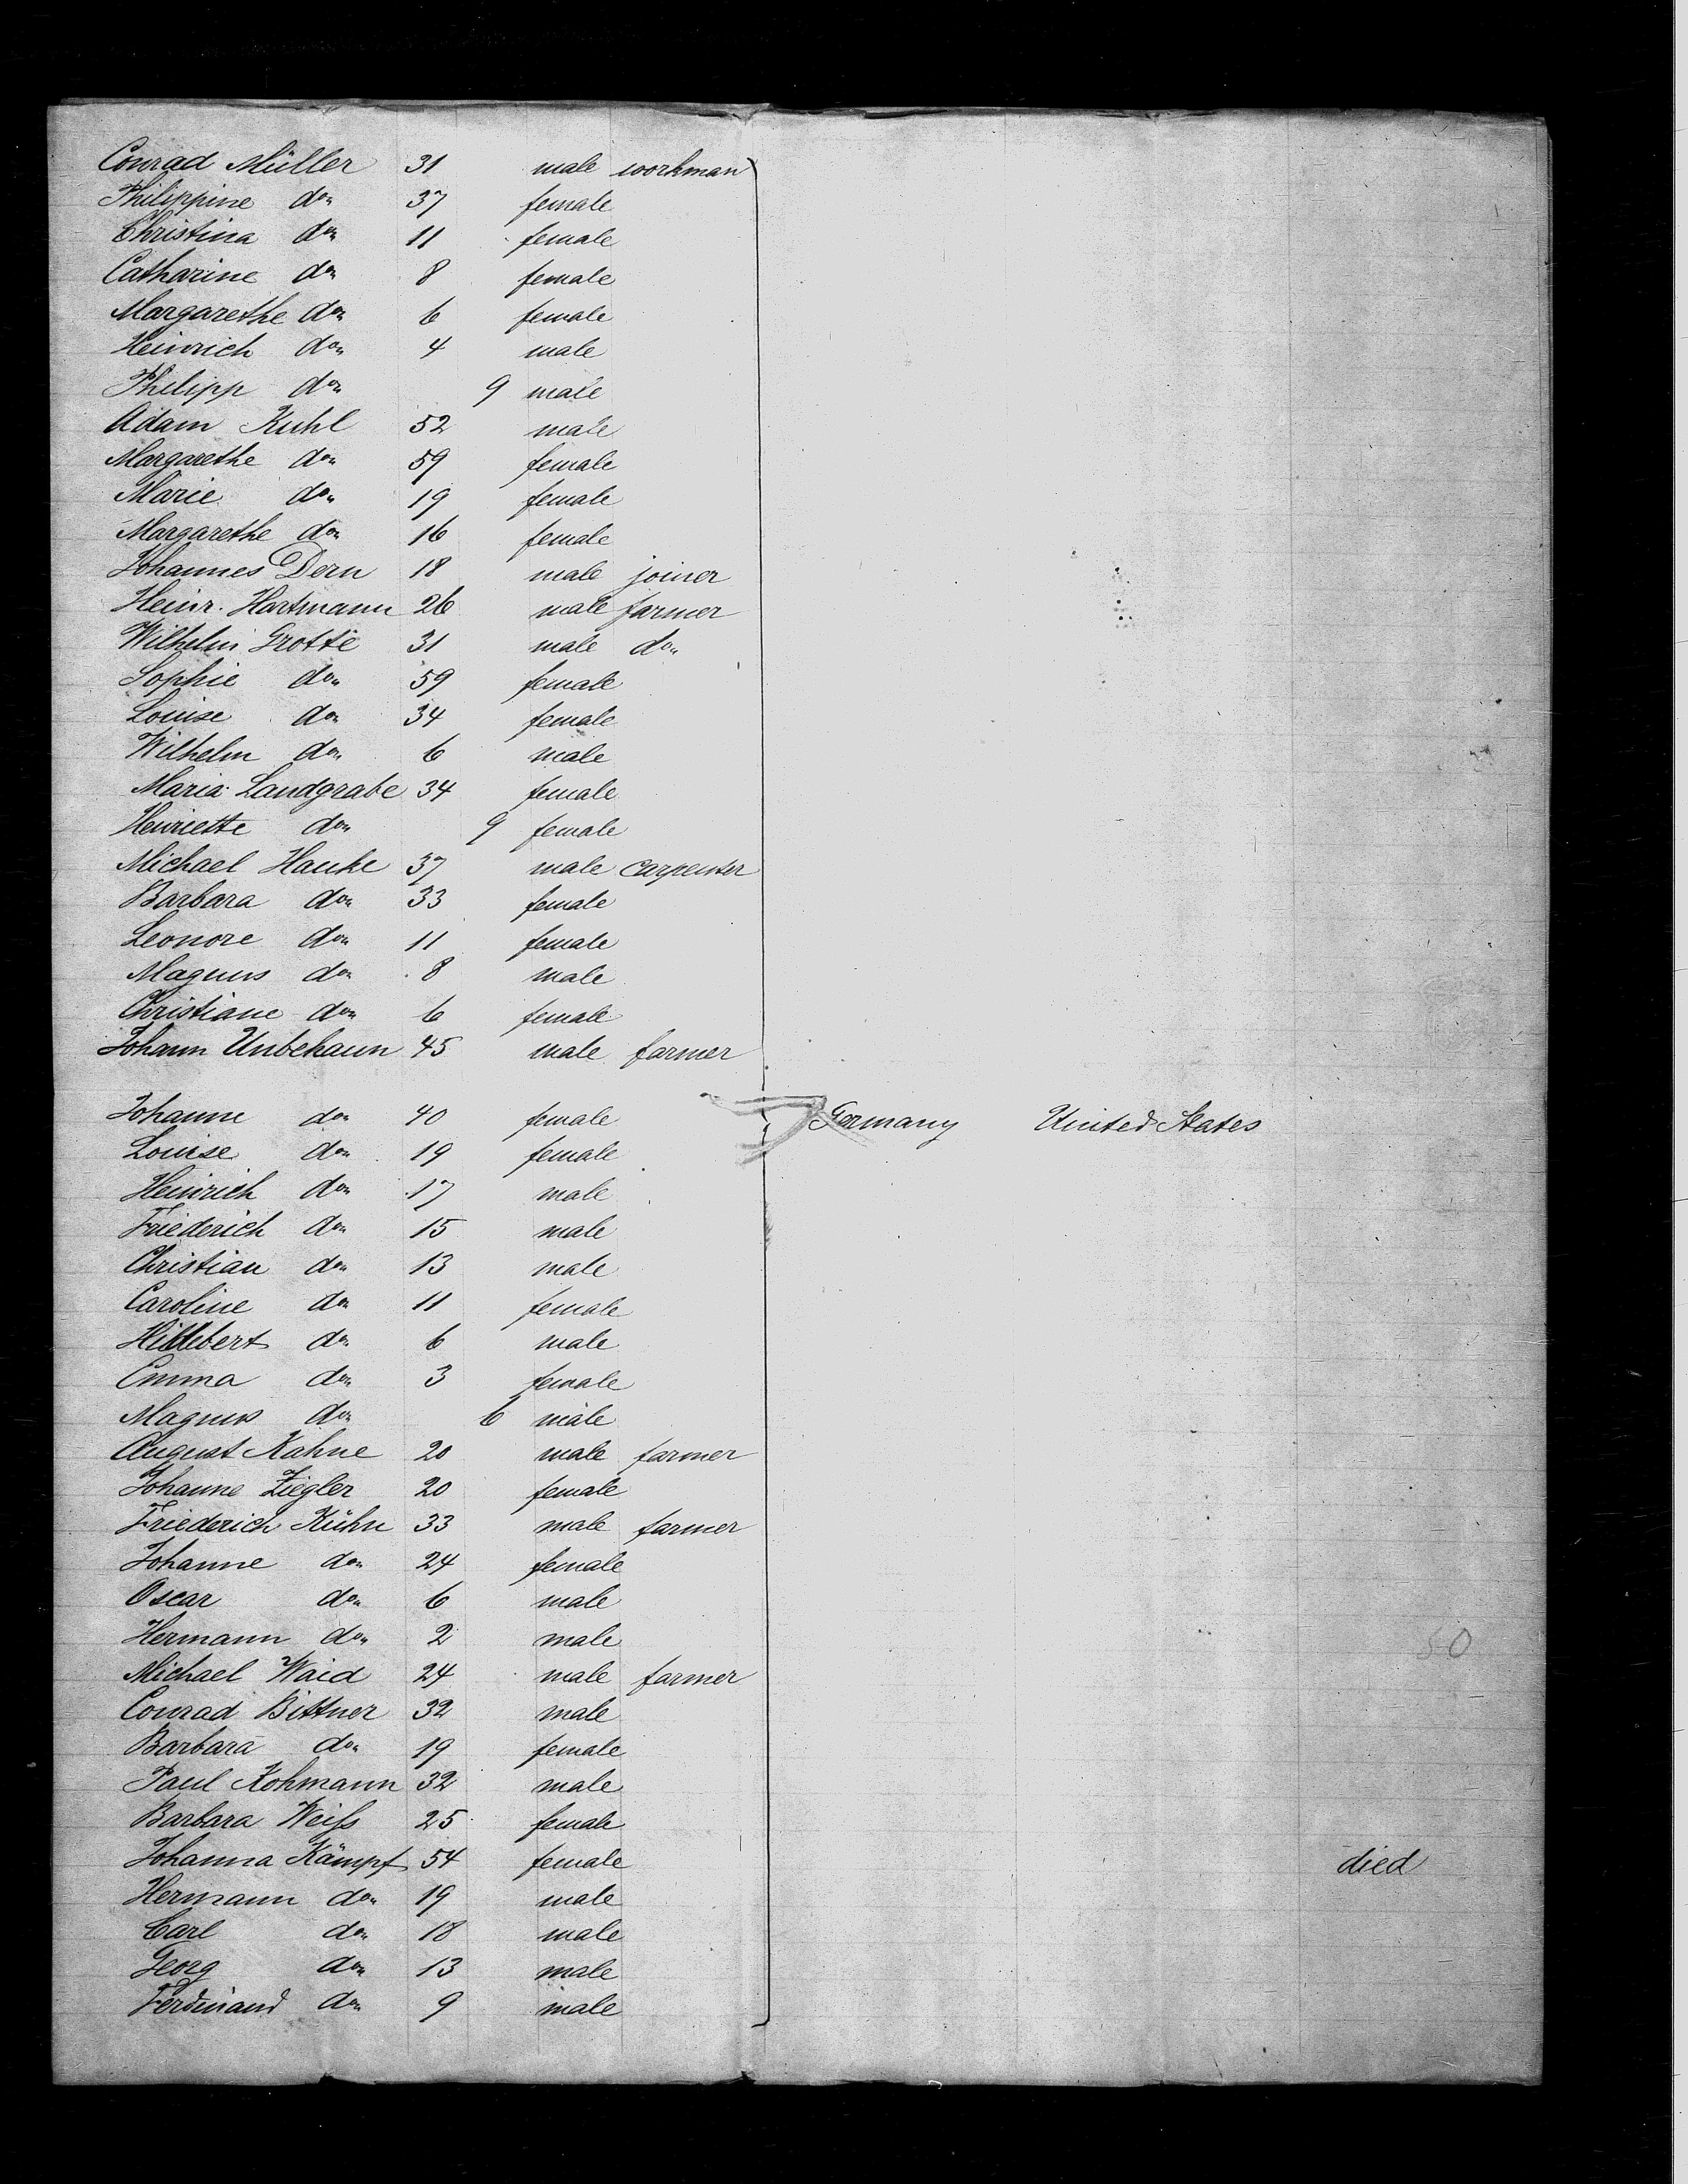 Conrad Müller 31 male workman
Philippine do 37 female
Christina do 11 female
Catharine do 8 female
Margarethe do 6 female
Heinrich do 4 male
Philipp do 9 male
Adam Kuhl 52 male
Margarethe do 59 female
Marie do 19 female
Margarethe do 16 female
Johannes Dern 18 male joiner
Heinr. Hartmann 26 male farmer
Wilhelm Grotte 31 male do
Sophie do 59 female
Louise do 34 female
Wilhelm do 6 male
Maria Landgrabe 34 female
Henriette do 9 female
Michael Hauke 37 male carpenter
Barbara do 33 female
Leonore do 11 female
Magnus do 8 male
Christiane do 6 female
Johann Unbehaun 45 male farmer
Johanne do 40 female Germany United States
Louise do 19 female
Heinrich do 17 male
Friederich do 15 male
Christian do 13 male
Caroline do 11 female
Hildebert do 6 male
Emma do 3 female
Magnus do 6 male
August Kahne 20 male farmer
Johanne Ziegler 20 female
Friederich Kühn 33 male farmer
Johanne do 24 female
Oscar do 6 male
Hermann do 2 male 50
Michael Waid 24 male farmer
Conrad Bittner 32 male
Barbara do 19 female
Paul Kohmann 32 male
Barbara Weiß 25 female
Johanna Kämpf 54 female died
Hermann do 19 male
Carl do 18 male
Georg do 13 male
Ferdinand do 9 male